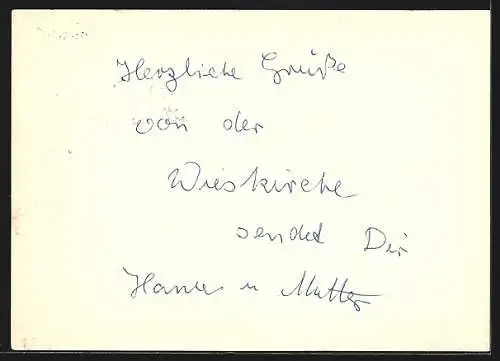 Herzliche Grüße
von der
Wieskirche
sendet Dir
u Mutter